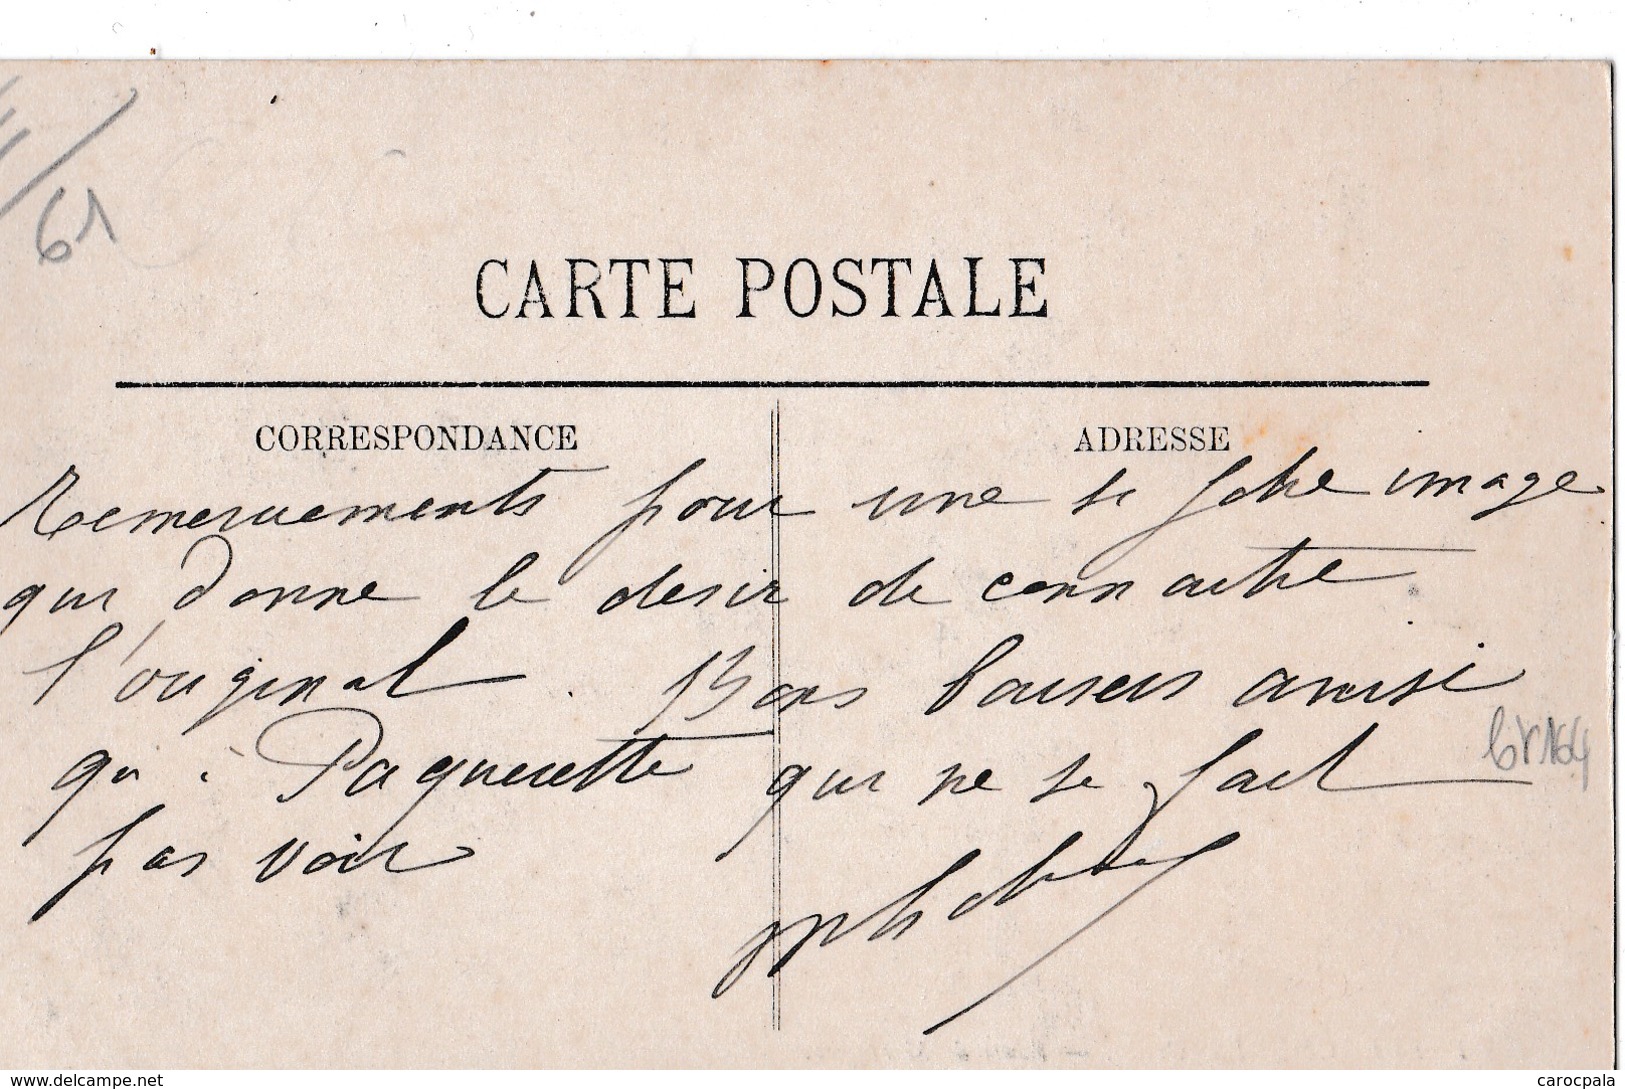 61
CARTE POSTALE
CORRESPONDANCE
ADRESSE
Remerciements pour une si jolie image
qui donne le desir de connaitre
l'original. Bons baisers ainsi
qu'à Paquerette qui ne se fait
pas voir
www.delcampe.net
carocpala